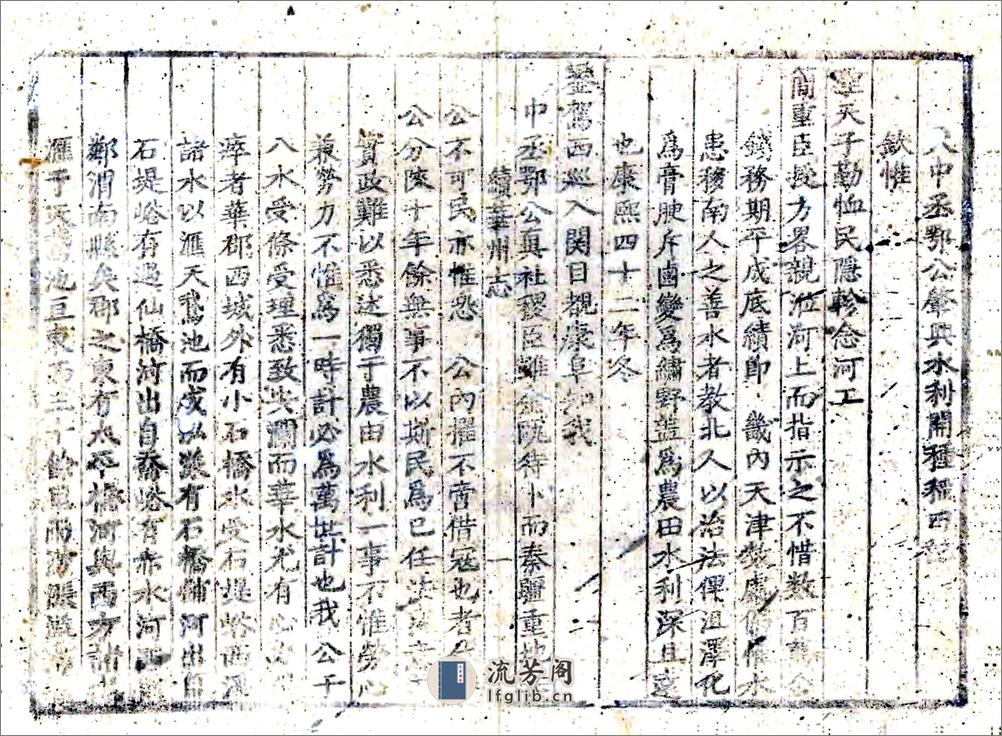 中丞鄂公肇興水利開種稻田記
欽惟
聖天子勤恤民隱軫念河工
簡重臣授方畧親涖河上而指示之不惜數百萬金
錢務期平成底績即 畿內天津製處 水
患移南人之善水者教北人以治法俾沮澤化
為膏腴斥鹵變為繡野蓋為農田水利深且遠
也康熙四十二年冬
鑾駕西巡入関目覩康阜知我
中丞鄂公真社稷臣雖金甌待卜而秦疆重地
續華州志 一
公不可民亦惟怨 公內擢不啻借寇也者
公分陝十年餘無事不以斯民為已任
實政難以悉述獨于農由水利一事不惟勞心
兼勞力不惟為一時計必為萬世計也我 公于
八水受條受理悉致安瀾而華水尤有心
瘁者華郡西城外有小石橋水受石堤峪西溪
諸水以滙天鵞池而成泓 有石橋鋪河出自
石堤峪有遇仙橋河出自喬峪有赤水河
鄰渭南縣矣郡之東有太平橋河與西方諸
滙于 為池亘東西二十餘里而瀦漲
流芳阁
lfglib.cn